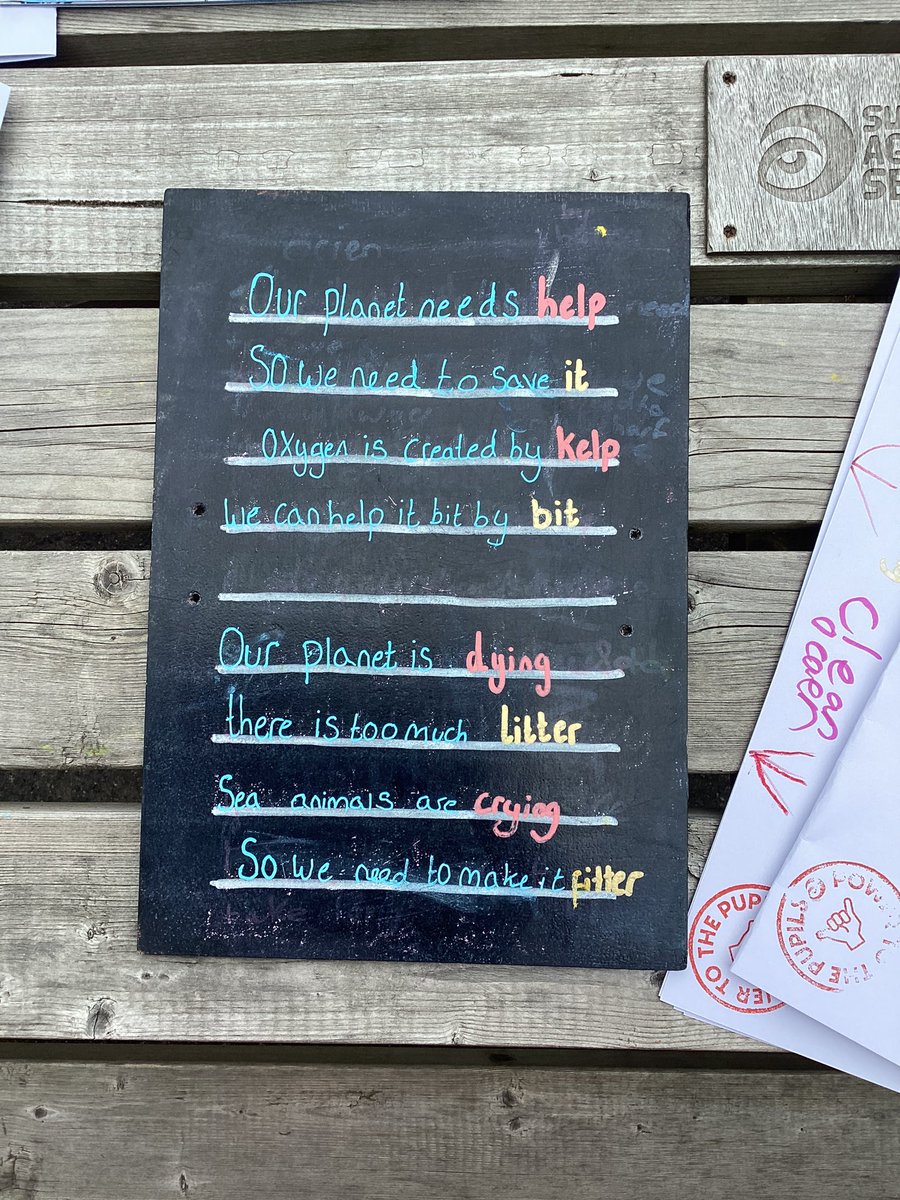 Our planet needs help
So we need to save it
Oxygen is created by kelp
We can help it bit by bit
Our planet is dying
there is too much litter
Sea animals are crying
So we need to make it fitter
clean
ocaen
TO THE PUP
THE PUPILS
POW